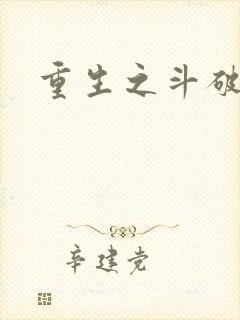 重生之斗破
辛建党